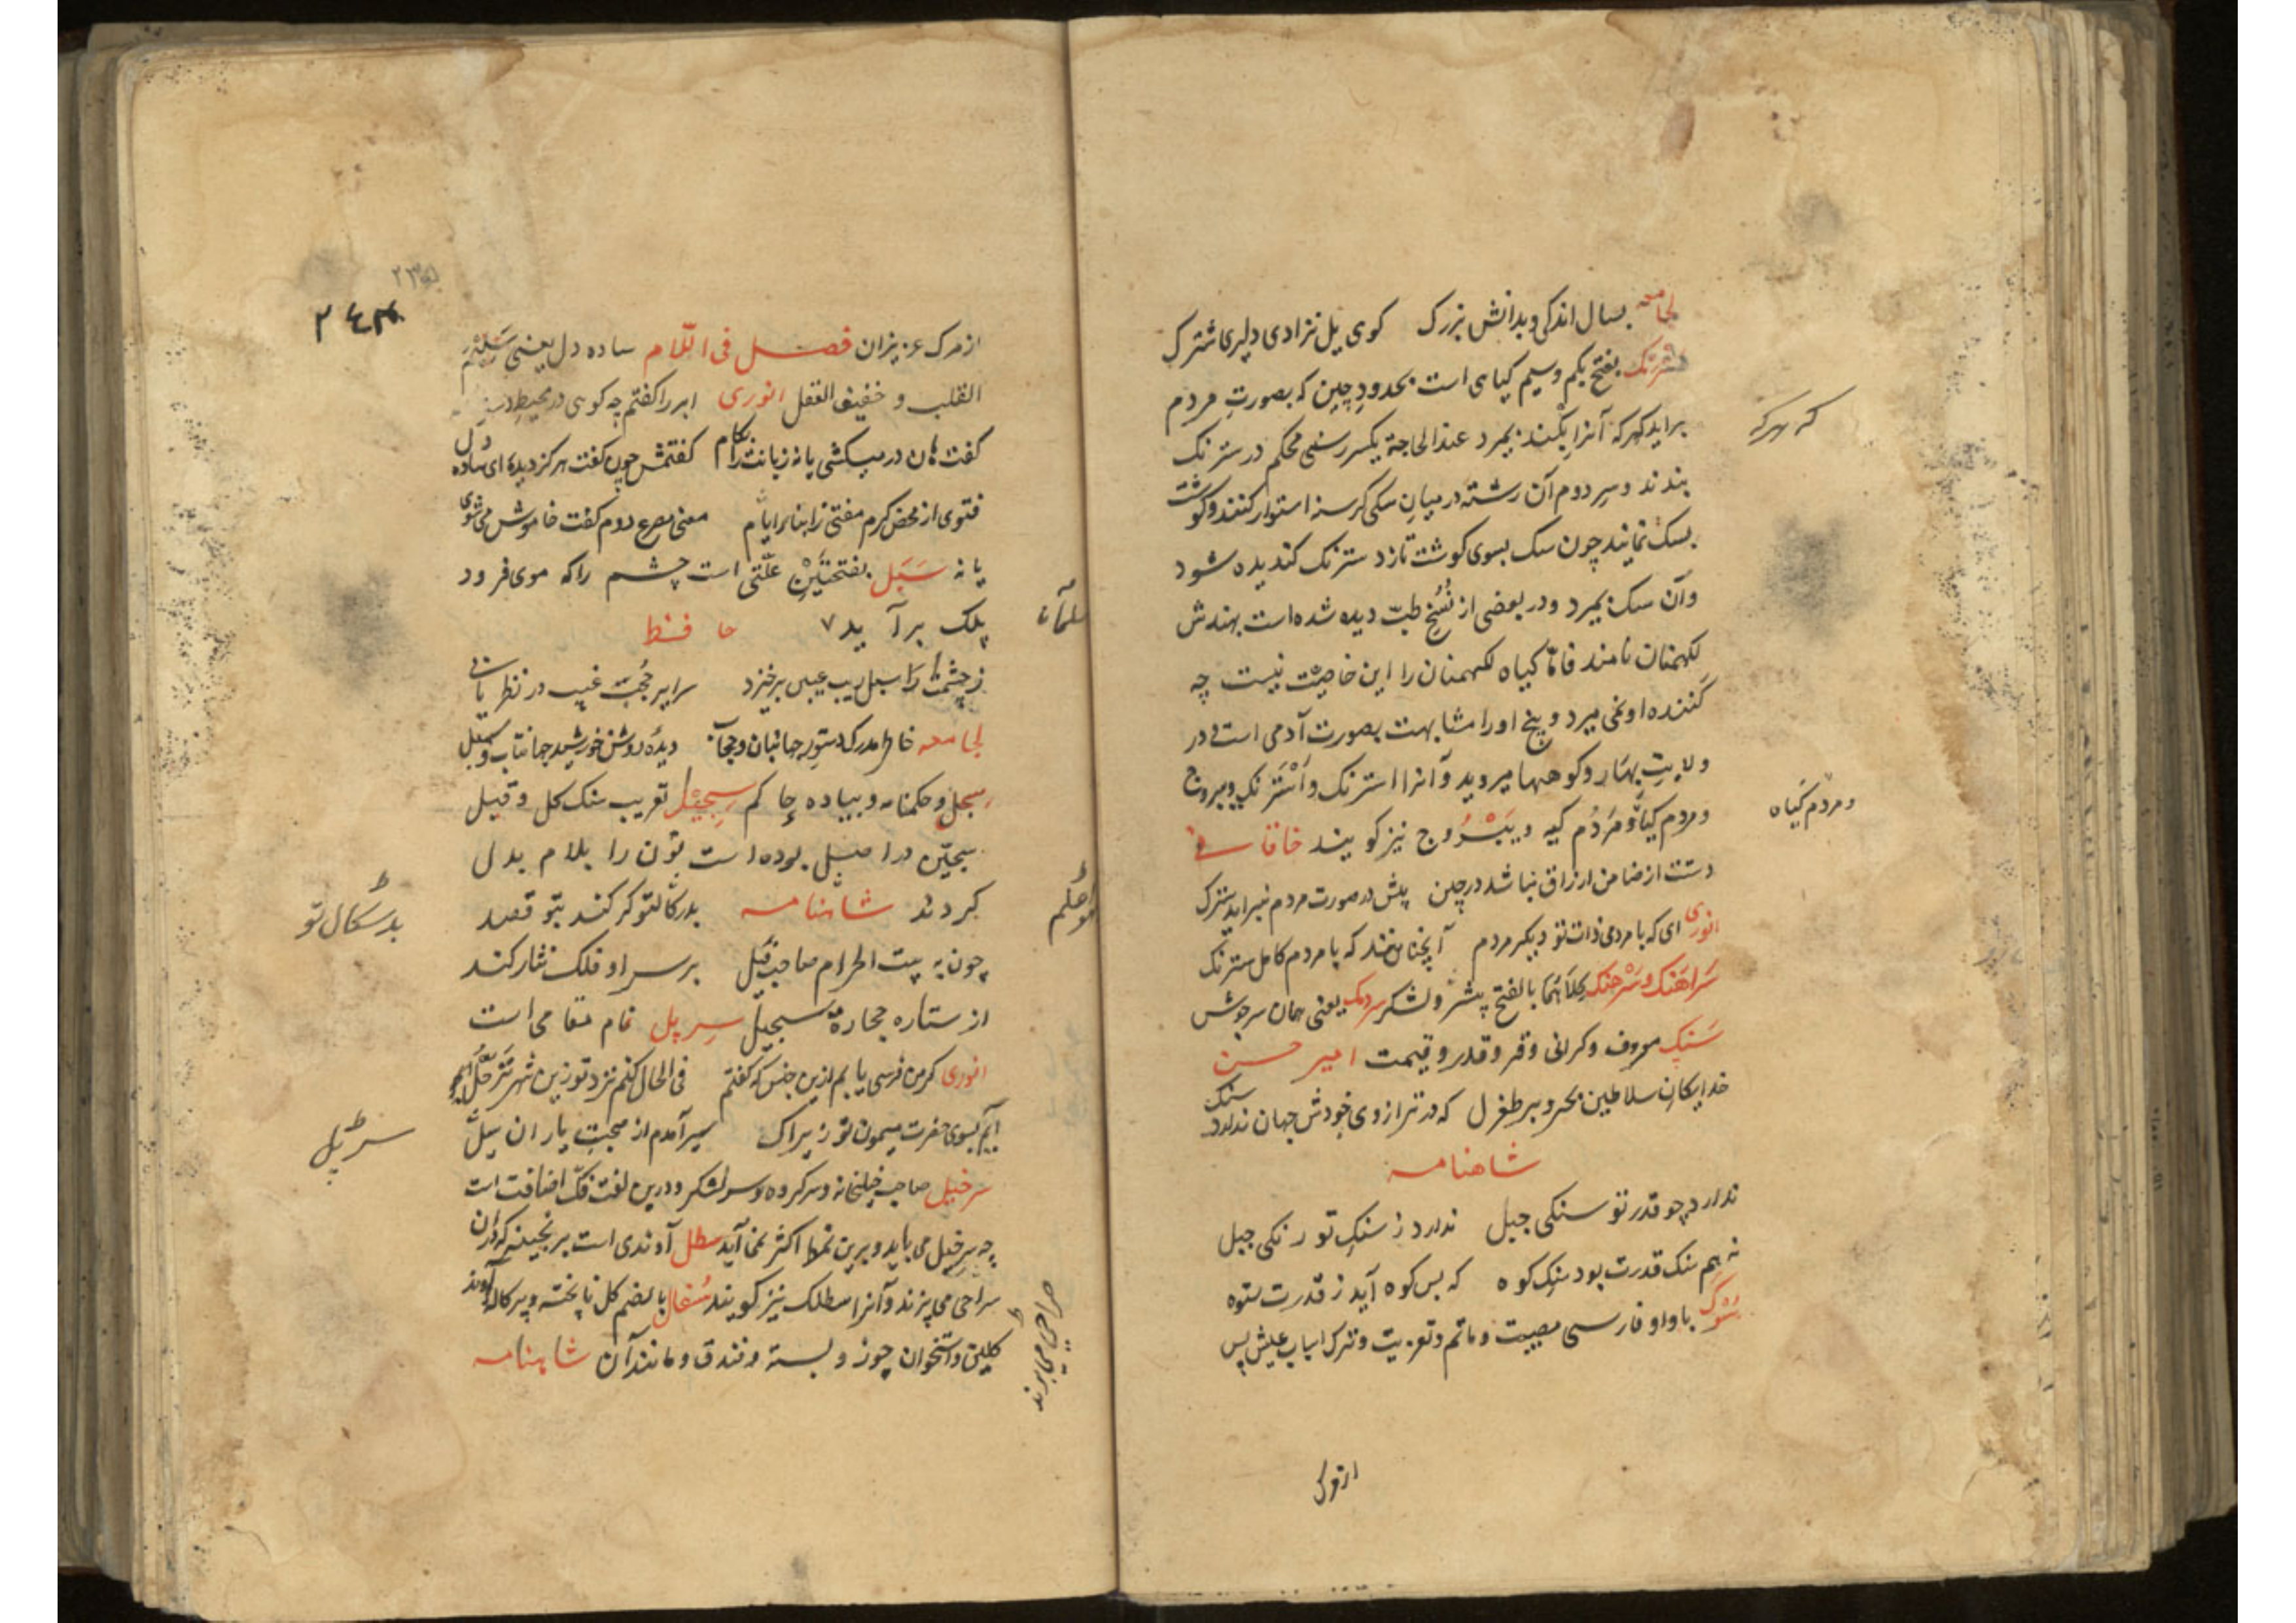 لجامعه بسال اندکی و بدانش بزرک کوی یل نژادی دلیری سترک
سترنک بفتح یکم وسیم کیاهی است بحدود چین که بصورت مردم
براید کهرکه آنرا بکند بمیرد عندالحاجة یکسر رسنی محکم در سترنک
که هرکه
بندند و سر دوم آن رشته در میان سکی کرسنه استوار کنند و کوشت
بسک نمایند چون سک بسوی کوشت تازد سترنک کندیده شود
و آن سک بمیرد و در بعضی از نُسَخ طبّ دیده شده است بهندش
لکهمنان نامند فامّا کیاه لکهمنان را این خاصیّت نیست چه
کننده او نمی میرد و بیخ او را مشابهت بصورت آدمی است و در
ولایتِ بهار و کوهها میروید و آنرا استرنک و اَسْتَرنک و یبروج
و مردم کیا و مَرْدُم کیه و یَبْرُوج نیز کویند خاقانی
و مردم کَیاه
دستت از ضامن ارزاق نباشد در چین پش در صورت مردم نبراید سترک
انوری ای که با مردمی ذات تو دیکر مردم آنچنانند که با مردم کامل سترنک
سَراهَنک و سَرْهَنک کِلَاهُمَا بالفتح پیشرو لشکر سردیک یعنی همان سرجوش
سَنک معروف و کرانی و قر و قدر و قیمت امیر حسن
خدایکان سلاطین بحر و بر طغرل که در ترازوی جودش جهان ندارد سنک
شاهنامه
ندارد چو قدر تو سنکی جبل ندارد ز سنکِ تو رنکی جبل
نه هم سنک قدرت بود سنک کوه که بس کوه آید ز قدرت ستوه
سُوک با واو فارسی مصیبت و ماتم و تعزیت و ترک اسباب عیش پس
از مرک
۲۴۳
از مرک عزیزان فصل فی اللّام ساده دل یعنی سَلِیْم
القلب و خفیف العقل انوری ابر را کفتم چه کوی در محیط دست
کفت هان در میکشی یا نه زبانت را بکام کفتمش چون کفت هرکز دیده ای ساده دل
فتوی از محض کرم مفتی ز ابنا برایّام معنی مصرع دوم کفت خاموش می شوی
یا نه سَبَل بفتحتَیْن علّتی است چشم را که موی فرود
پلک برآید حافظ
سلمان
ز چشمها را سبل یب عیبی برخیزد سراپر حُجُبّ غیب در نظر یابی
لجامعه خاطر مدرک دستور جهانبان و جهان دیدهٔ روشن خورشید جهانتاب و سبل
سجل و حکمنامه و بیاده حاکم سِجّیْل تعریب سنک کل و قیل
سجّین در اصل بوده است نون را بلام بدل
کردند شاهنامه بدرکالتو کر کند بتو قصد
بدسکال تو
چون به بیت الحرام صاحب فیل بر سر او فلک نثار کند
از ستاره حجارهٔ سجّیل سرپل نام مقامی است
انوری کر من فرسی یابم ازین جنس که کفتم فی الحال کنم نزد تو زین شهر تَرَحُّل
آیم بسوی حضرت میمون تو زیراک سیر آمدم از صحبت یاران سرپل
سرپل
سرخیل صاحب خیلخانه و سرکروه و سر لشکر و درین لغت فکّ اضافت است
چه سرخیل می باید و برین نمط اکثر نمی آید سطل آوندی است برنجینه که دران
سراحی می پزند و آنرا سطلک نیز کویند سُفال بالضم کل ناپخته و پرکاله آوند
صراحی می برند
کلین و استخوان جوز و پسته و فندق و مانند آن شاهنامه